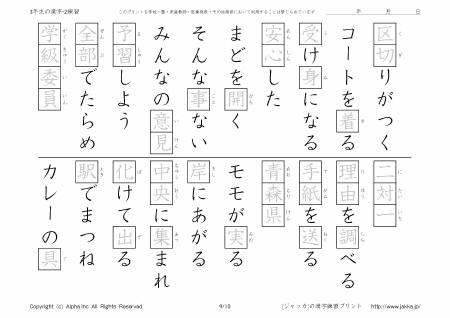 3年生の漢字-2練習
このプリントを学校・塾・家庭教師・医療現場・その他教育において利用することは禁じられています
年 月 日
区切りがつく
コートを着る
受け身になる
安心した
まどを開く
そんな事ない
みんなの意見
予習しよう
全部でたらめ
学級委員
二対一
理由を調べる
手紙を送る
青森県
モモが実る
岸にあがる
中央に集まれ
化けて出る
駅でまつね
カレーの具
Copyright (c) Alpha.Inc All Rights Reserved.
9/10
[ジャッカ]の漢字練習プリント
http://www.jakka.jp/